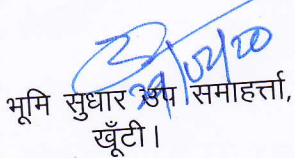 29/02/20
भूमि सुधार उप समाहर्त्ता,
खूँटी।